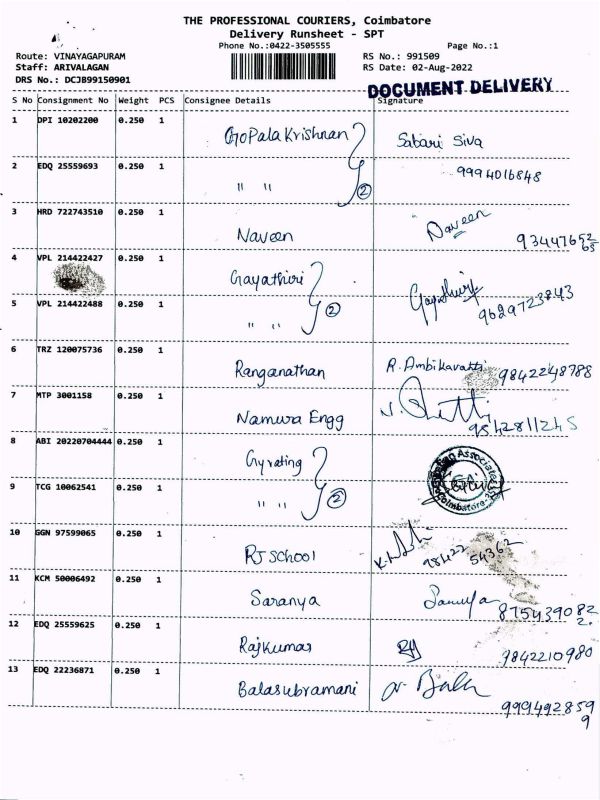 THE PROFESSIONAL COURIERS, Coimbatore
Delivery Runsheet - SPT
Phone No.:0422-3505555
Page No.:1
Route: VINAYAGAPURAM
RS No.: 991509
Staff: ARIVALAGAN
RS Date: 02-Aug-2022
DRS No.: DCJB99150901
DOCUMENT DELIVERY
S No Consignment No Weight PCS Consignee Details Signature
1 DPI 10202200 0.250 1 GoPalaKrishnan Sabari Siva
2 EDQ 25559693 0.250 1 " " 2 9994016848
3 HRD 722743510 0.250 1 Naveen Naveen
4 VPL 214422427 0.250 1 Gayathiri
5 VPL 214422488 0.250 1 " " 2 9629723843
6 TRZ 120075736 0.250 1 Ranganathan R. Ambikavatti 9842248788
7 MTP 3001158 0.250 1 Namura Engg
8 ABI 20220704444 0.250 1 Gyrating
9 TCG 10062541 0.250 1 " " 2
Coimbatore
10 GGN 97599065 0.250 1 RJ School 98422 54362
11 KCM 50006492 0.250 1 Saranya
8754390822.
12 EDQ 25559625 0.250 1 Rajkumar 9842210980
13 EDQ 22236871 0.250 1 Balasubramani
9994928599